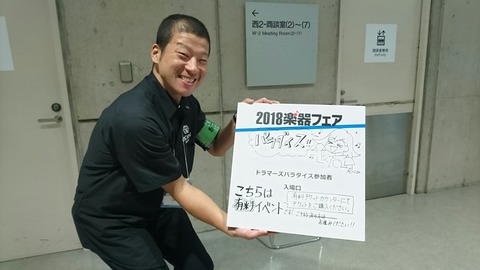 ←
西2-商談室(2)〜(7)
W-2 Meeting Room(2)-(7)
2018楽器フェア
パラダイス!!
ドラマーズパラダイス参加者
入場口
こちらは
有料イベント
有料チケットカウンターにて
チケットをご購入ください。
です!
お進みください!!